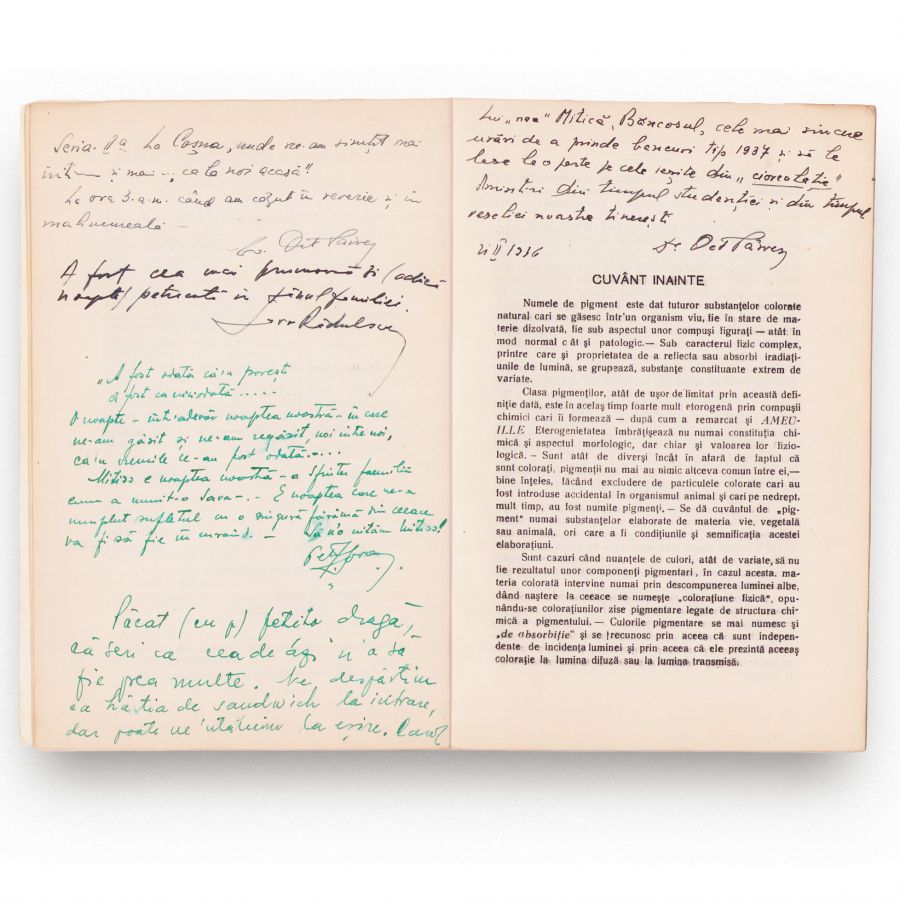 Seria IIa La Coşna, unde ne-am simţit mai
intim şi mai ..., ca la noi acasă!"
La ora 3 a.m. când am căzut în reverie şi în
mahmureală —
Dr. Oct Pârvez
A fost cea mai (adică
noapte) petrecută în sânul familiei.
Ion Rădulescu
„A fost odată ca'n poveşti
A fost ca niciodată .....
O noapte - într'adevăr noaptea noastră - în care
ne-am găsit şi ne-am regăsit, noi între noi,
ca'n vremile ce-au fost odată....
Mitiss e noaptea noastră - a sfintei familii
cum a numit-o Sava -.- E noaptea care ne-a
umplut sufletul cu o singură fărâmă din ceeace
va fi să fie în . — Să n'o uităm Mitiss!
Păcat (cu p) fetito dragă,
că seri ca cea de azi n'a să
fie prea multe. Ne despărţim
ca hârtia de sandwich la intrare,
dar poate ne'ntâlnim la eşire. Carol
Lui „nea" Mitică, Băncosul, cele mai sincere
urări de a prinde bancuri tip 1937 şi să le
lese la o parte pe cele ieşite din „ciorcotaţie"
Amintiri din timpul studenţiei şi din timpul
veseliei noastre tinereşti
II 1936 Dr Oct Pârvez
CUVÂNT INAINTE
Numele de pigment este dat tuturor substanţelor colorate
natural cari se găsesc într'un organism viu, fie în stare de ma-
terie dizolvată, fie sub aspectul unor compuşi figuraţi — atât în
mod normal cât şi patologic.— Sub caracterul fizic complex,
printre care şi proprietatea de a reflecta sau absorbi iradiaţi-
unile de lumină, se grupează, substanţe constituante extrem de
variate.
Clasa pigmenţilor, atât de uşor de limitat prin această defi-
niţie dată, este în acelaş timp foarte mult etorogenă prin compuşii
chimici cari îi formează — după cum a remarcat şi AMEU-
ILLE Eterogenietatea îmbrăţişează nu numai constituţia chi-
mică şi aspectul morfologic, dar chiar şi valoarea lor fizio-
logică. – Sunt atât de diverşi încât în afară de faptul că
snnt coloraţi, pigmenţii nu mai au nimic altceva comun între ei,—
bine înţeles, făcând excludere de particulele colorate cari au
fost introduse accidental în organismul animal şi cari pe nedrept,
mult timp, au fost numite pigmenţi. – Se dă cuvântul de „pig-
ment" numai substanţelor elaborate de materia vie, vegetală
sau animală, ori care a fi condiţiunile şi semnificaţia acestei
elaboraţiuni.
Sunt cazuri când nuanţele de culori, atât de variate, să nu
fie rezultatul unor componenţi pigmentari, în cazul acesta, ma-
teria colorată intervine numai prin descompunerea luminei albe,
dând naştere la ceeace se numeşte „coloraţiune fizică", opu-
nându-se coloraţiunilor zise pigmentare legate de structura chi-
mică a pigmentului.— Culorile pigmentare se mai numesc şi
„de absorbiţie" şi se recunosc prin aceea că sunt indepen-
dente de incidenţa luminei şi prin aceea că ele prezintă aceeaş
coloraţie la lumina difuză sau la lumina transmisă.